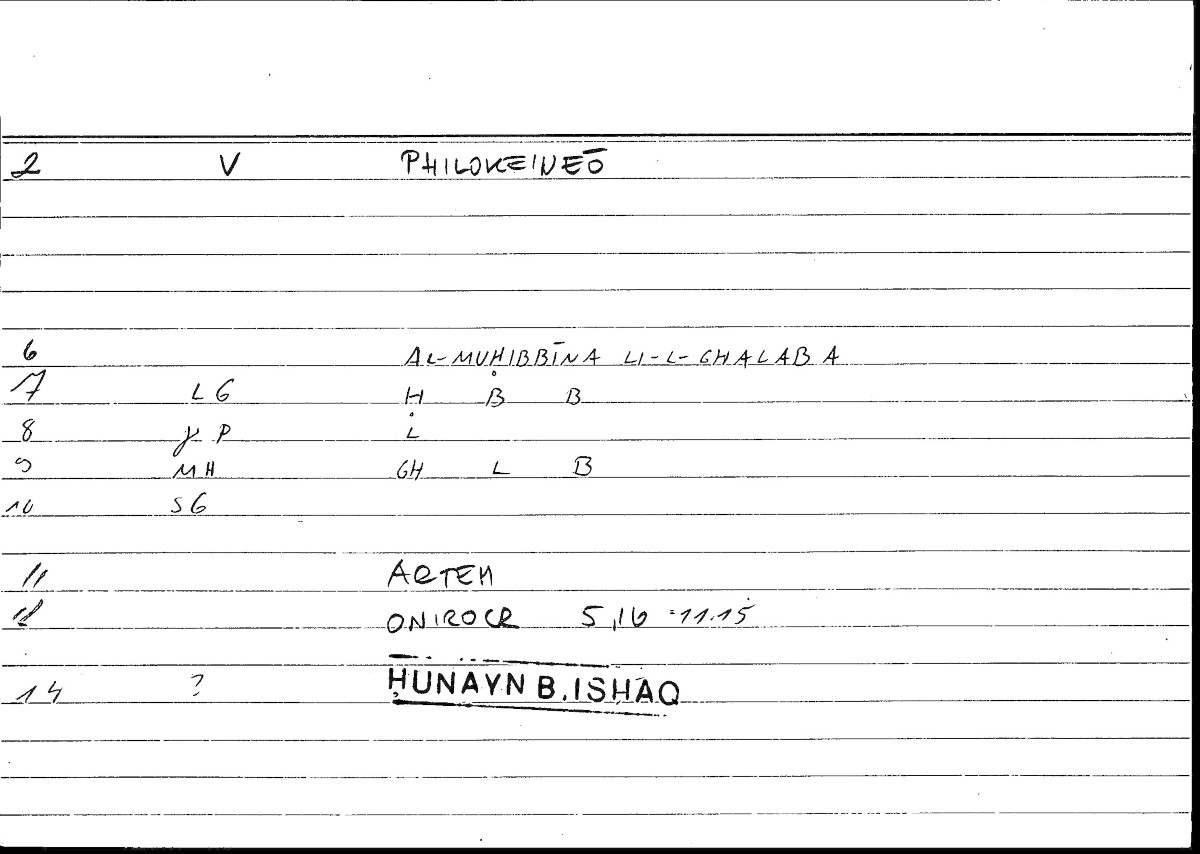 2 V PHILOKEINEŌ
6 AL-MUḤIBBĪNA LI-L-GHALABA
7 LG Ḥ B B
8 γP L
9 MH GH L B
10 SG
11 ARTEM
12 ONIROCR 5,16 =11.15
14 ? ḤUNAYN B.ISḤĀQ